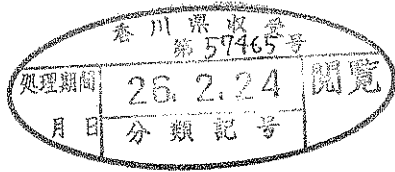 香川県収受
第57465号
処理期間
26.2.24
閲覧
月日
分類記号